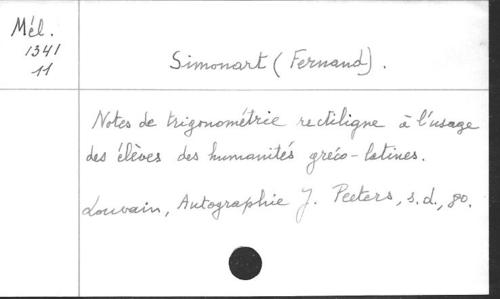 Mél.
1341
11
Simonart (Fernand).
Notes de trigonométrie rectiligne à l'usage
des élèves des humanités gréco-latines.
Louvain, Autographie J. Peeters, s.d., 8o.